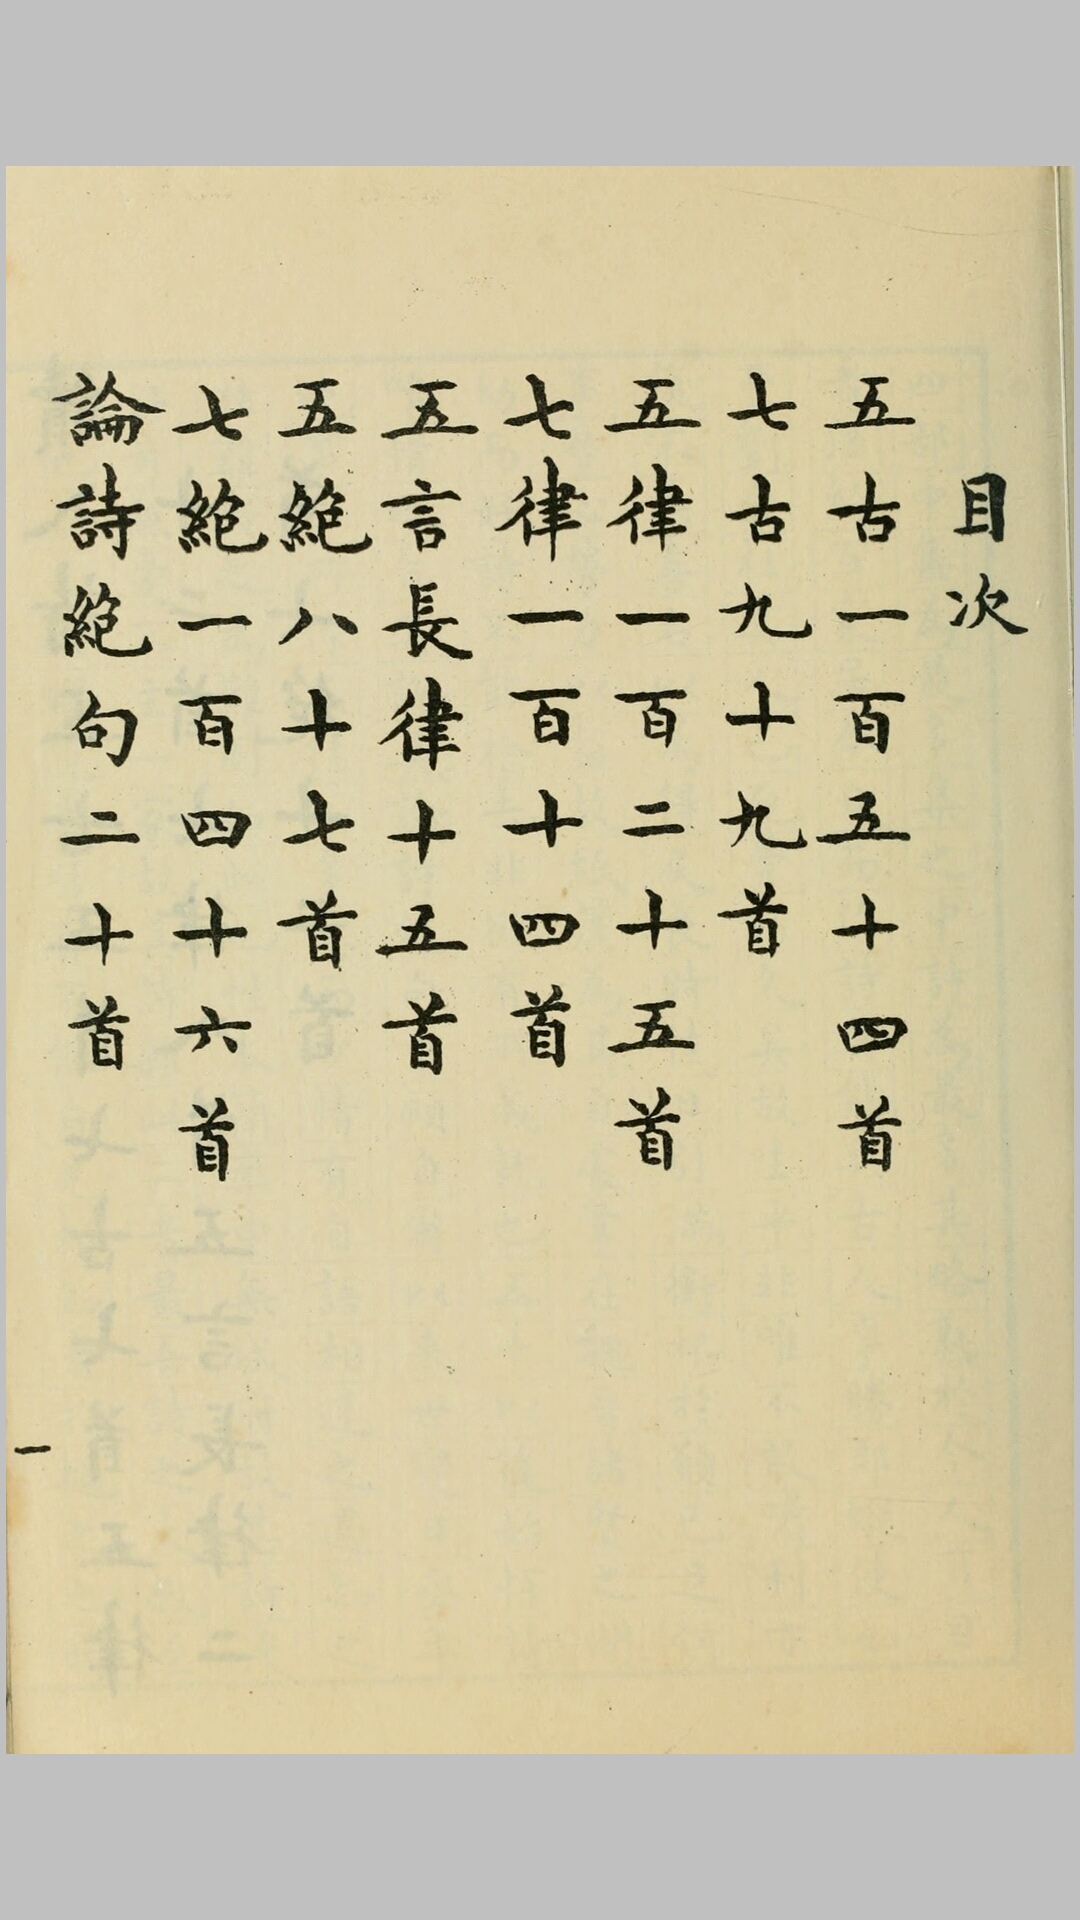 目次
五古一百五十四首
七古九十九首
五律一百二十五首
七律一百十四首
五言長律十五首
五絕八十七首
七絕一百四十六首
論詩絕句二十首
一